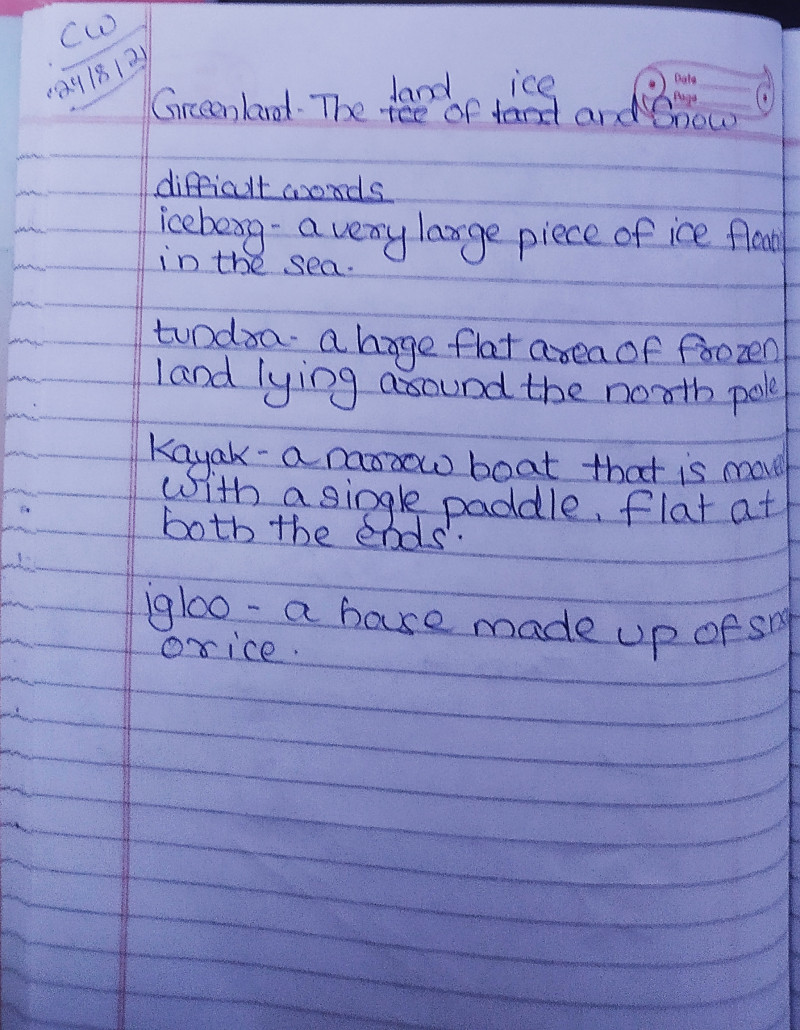 CW
24/8/21
Date
Page
land ice
Greenland - The ~~Ice~~ of ~~land~~ and Snow
difficult words
iceberg - a very large piece of ice
in the sea.
tundra - a large flat area of frozen
land lying around the north pole
Kayak - a narrow boat that is
with a single paddle, flat at
both the ends.
igloo - a house made up of
or ice.